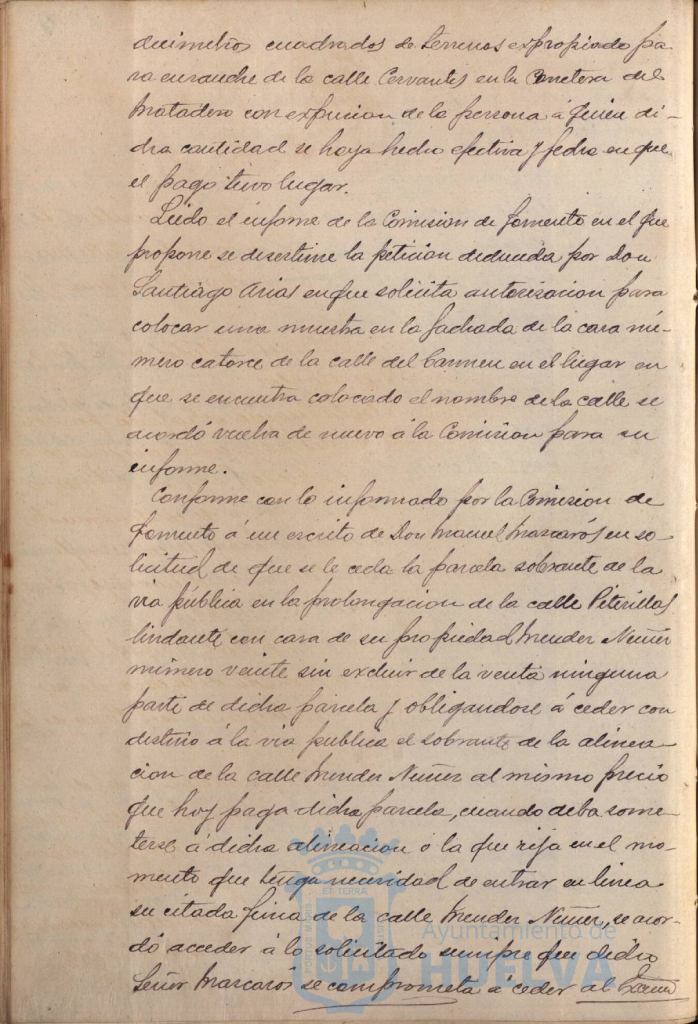 decimetros cuadrados de terrenos expropiado pa-
ra ensanche de la calle Cervantes en la Carretera del
Matadero con expresion de la persona á quien di-
cha cantidad se haya hecho efectiva y fecha en que
el pago tuvo lugar.
Leido el informe de la Comision de fomento en el que
propone se desestime la peticion deducida por Don
Santiago Arias en que solicita autorizacion para
colocar una muestra en la fachada de la casa nú-
mero catorce de la calle del Carmen en el lugar en
que se encuentra colocado el nombre de la calle se
acordó vuelva de nuevo á la Comision para su
informe.
Conforme con lo informado por la Comision de
fomento á un escrito de Don Manuel Mascarós en so-
licitud de que se le ceda la parcela sobrante de la
via pública en la prolongacion de la calle Piterillas
lindante con casa de su propiedad Mendez Nuñez
número veinte sin excluir de la venta ninguna
parte de dicha parcela y obligandose á ceder con
destino á la via publica el sobrante de la alinea-
cion de la calle Mendez Nuñez al mismo precio
que hoy paga dicha parcela, cuando deba some-
terse á dicha alineacion o la que rija en el mo-
mento que tenga necesidad de entrar en linea
su citada finca de la calle Mendez Nuñez, se acor-
dó acceder á lo solicitado siempre que dicho
Señor Mascarós se comprometa á ceder al Excmo
ET TERRA
Ayuntamiento de
HUELVA